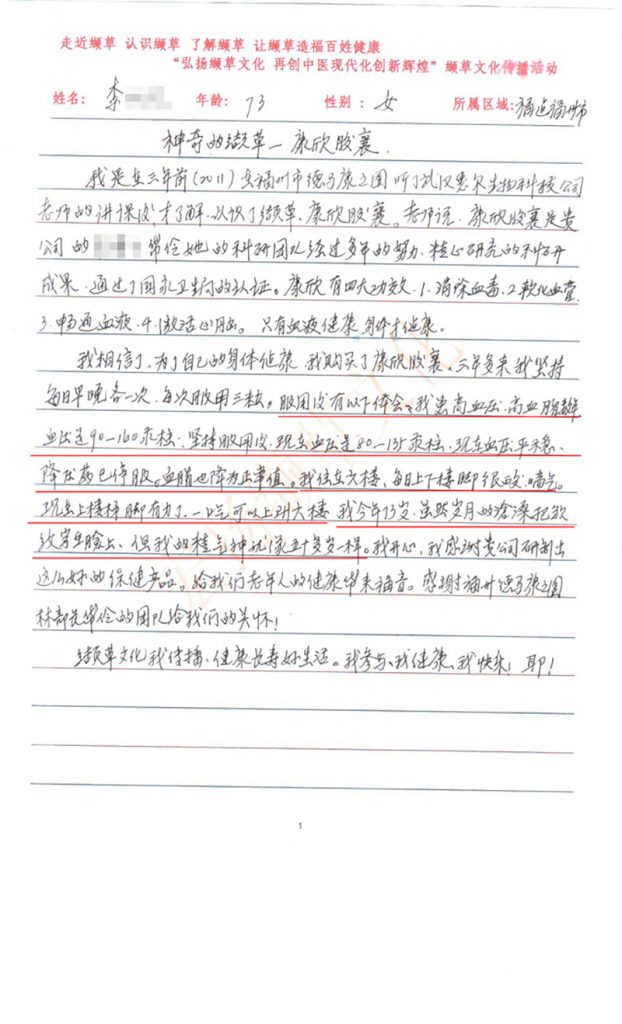 走近缬草 认识缬草 了解缬草 让缬草造福百姓健康
“弘扬缬草文化 再创中医现代化创新辉煌” 缬草文化传播活动
姓名: 李 年龄: 73 性别: 女 所属区域:福建福州市
神奇的缬草—康欣胶襄
我是在三年前(2011)在福州市德马康之园听了武汉惠尔生物科技公司
老师的讲课后,才了解.认识了缬草.康欣胶襄。老师说.康欣胶襄是贵
公司的 带令她的科研团队经过多年的努力.精心研究的科研
成果.通过了国家卫生局的认证。康欣有四大功效.1.消除血毒.2.软化血管.
3.畅通血液.4.激活心脑。只有血液健康身体才健康。
我相信了.为了自己的身体健康.我购买了康欣胶襄、三年多来我坚持
每日早晚各一次.每次服用三粒。服用后有以下体会:我患高血压.高血脂
血压是90—160汞柱.坚持服用后.现在血压是80—135汞柱.现在血压平稳、
降压药已停服。血脂也降为正常值。我住在六楼、每日上下楼脚很酸.喘气。
现在上楼梯脚有力了.一口气可以上到六楼 我今年73岁.虽然岁月的沧桑把我
放穿在脸上、但我的精气神就像五十多岁一样。我开心,我感谢贵公司研制出
这么好的保健产品。给我们老年人的健康带来福音。感谢福州德马康之园
林部长带令的团队给我们的关怀!
缬草文化我传播.健康长寿好生活。我参与、我健康、我快乐!耶!
1